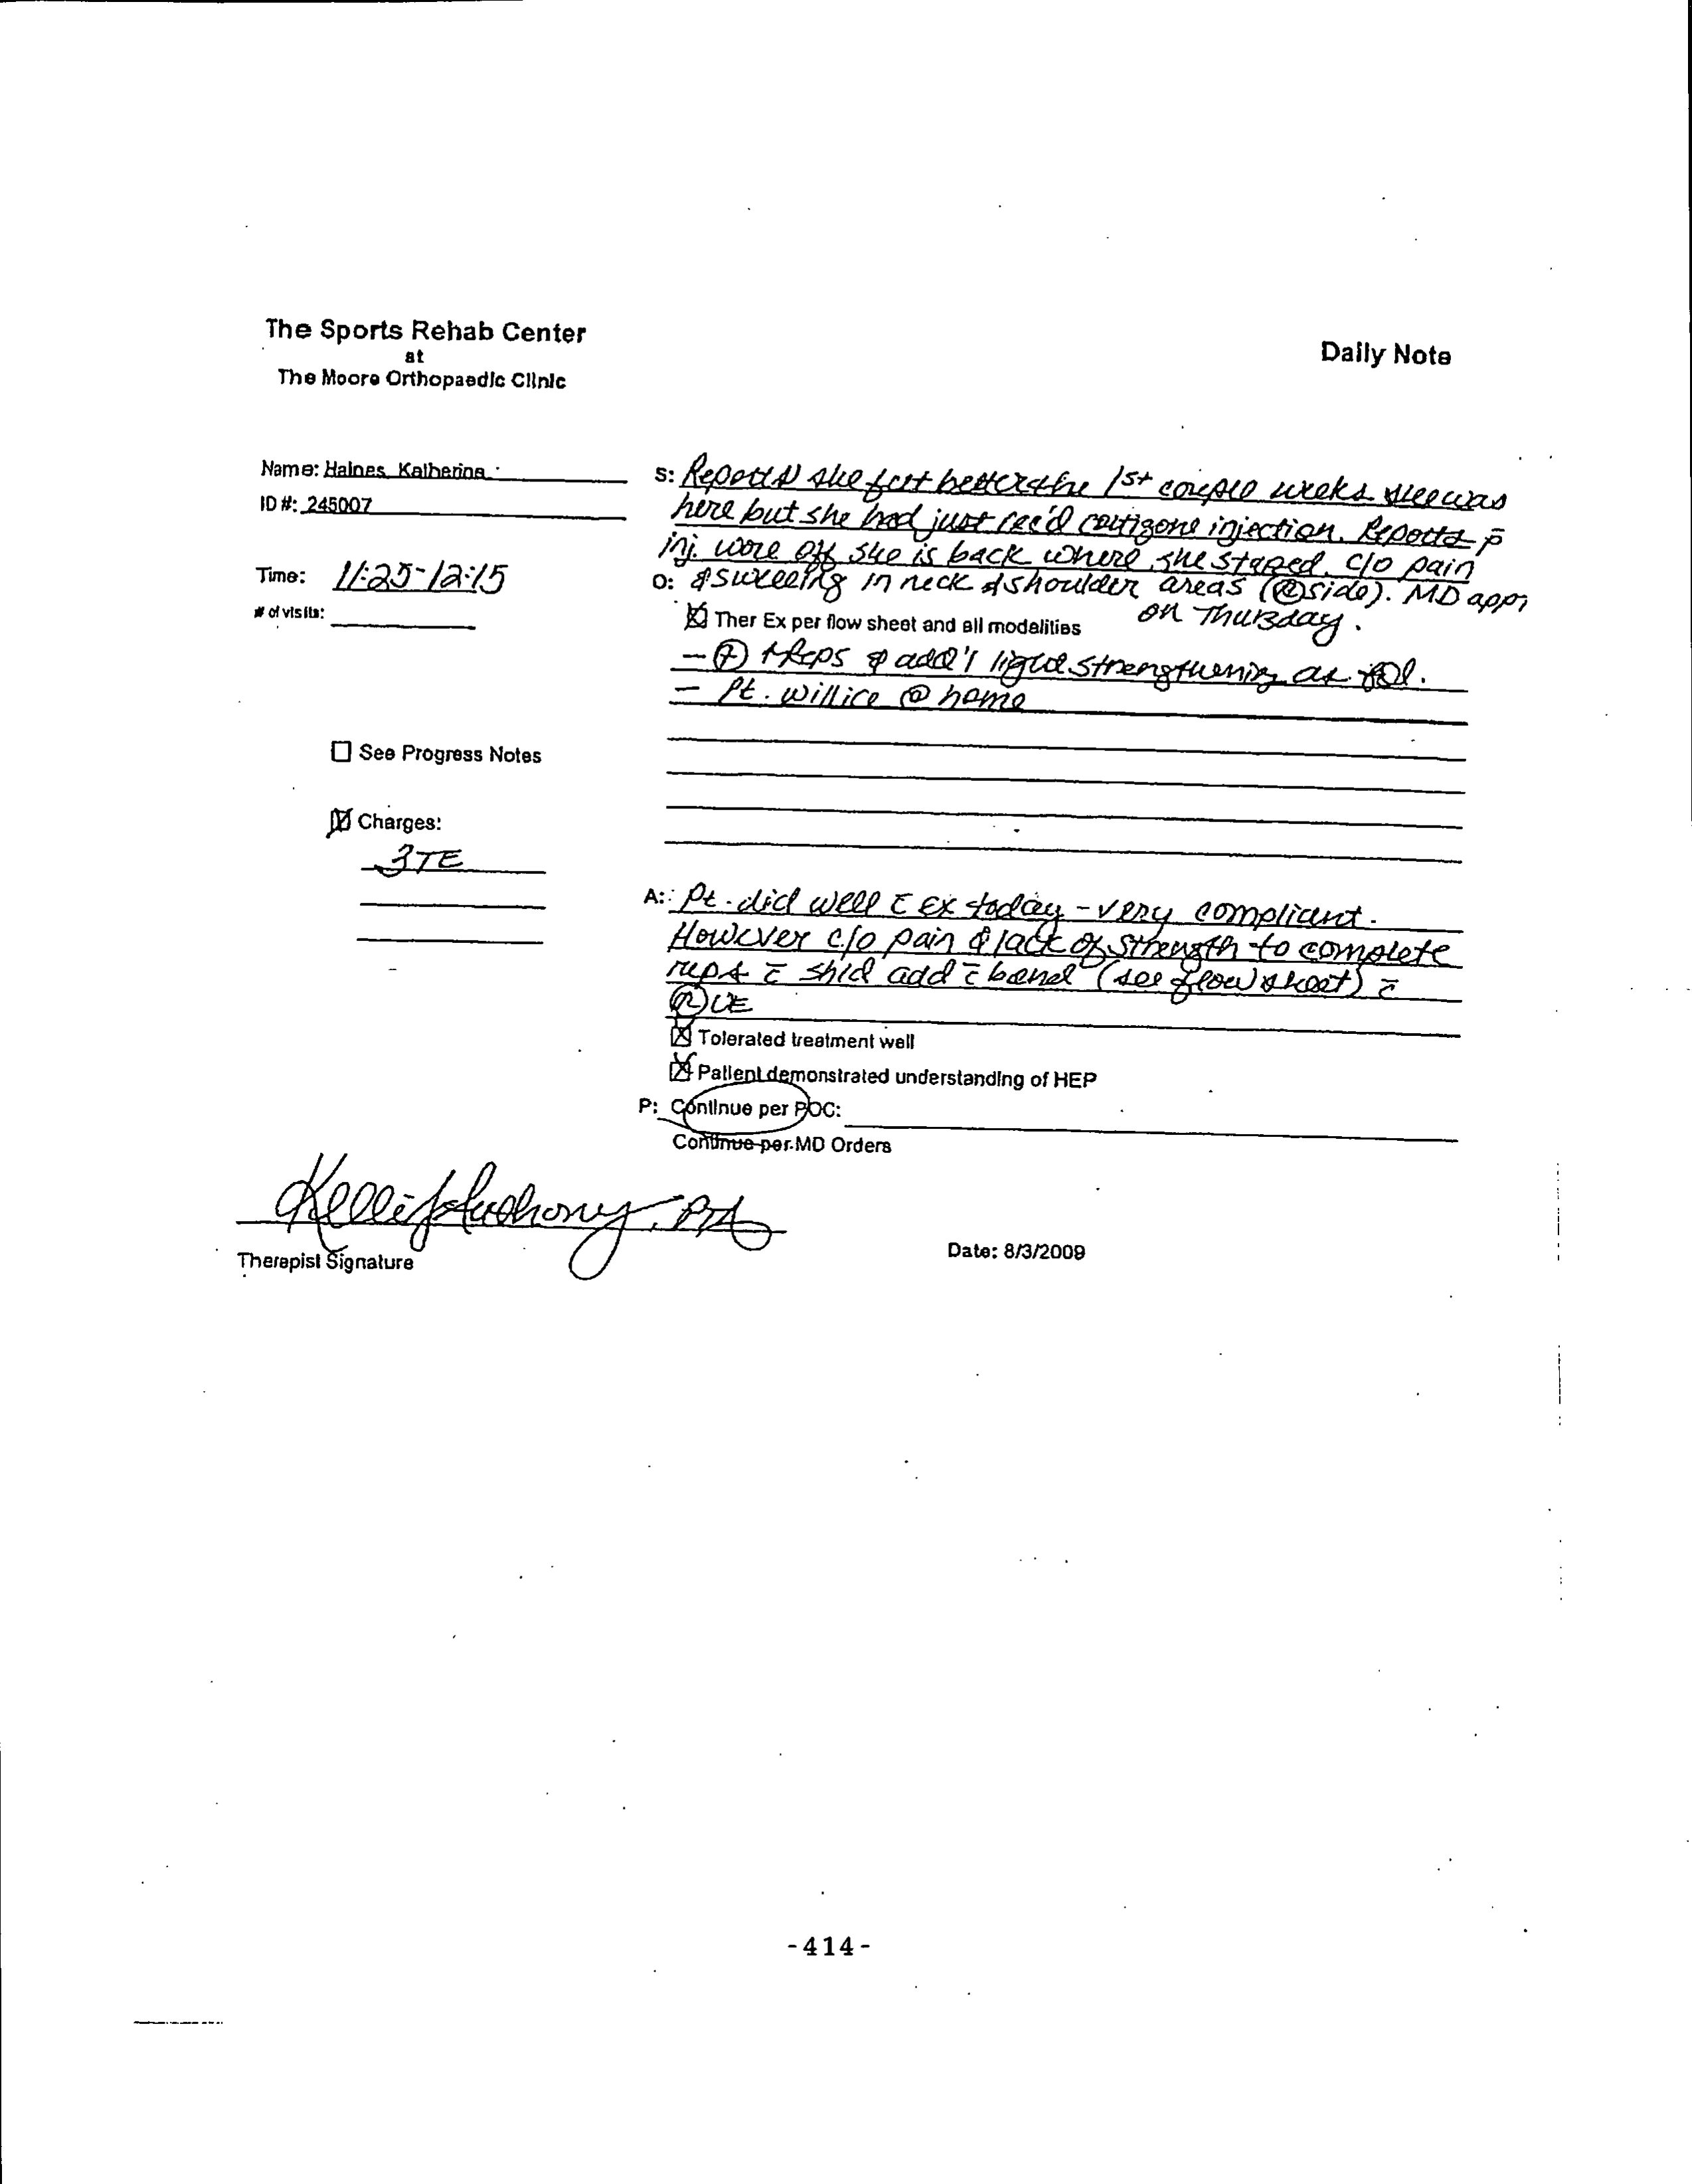 The Sports Rehab Center
at
The Moore Orthopaedic Clinic
Daily Note
Name: Haines, Katherine
ID #: 245007
Time: 11:25-12:15
# of visits:
See Progress Notes
Charges:
3TE
S: Reports she felt better the 1st couple weeks she was
here but she had just rec'd cortizone injection. Reports p̄
inj. wore off she is back where she staped. c/o pain
O: & swelling in neck & shoulder areas (R side). MD app,
on Thursday.
Ther Ex per flow sheet and all modalities
- reps & add'l light strengthening as tol.
- Pt. will ice @ home
A: Pt. did well c̄ ex today - very compliant.
However c/o pain & lack of strength to complete
reps c̄ shld add c̄ band (see flow sheet) c̄
(R) UE
Tolerated treatment well
Patient demonstrated understanding of HEP
P: Continue per POC:
Continue per MD Orders
Kelli Anthony, PTA
Therapist Signature
Date: 8/3/2009
-414-